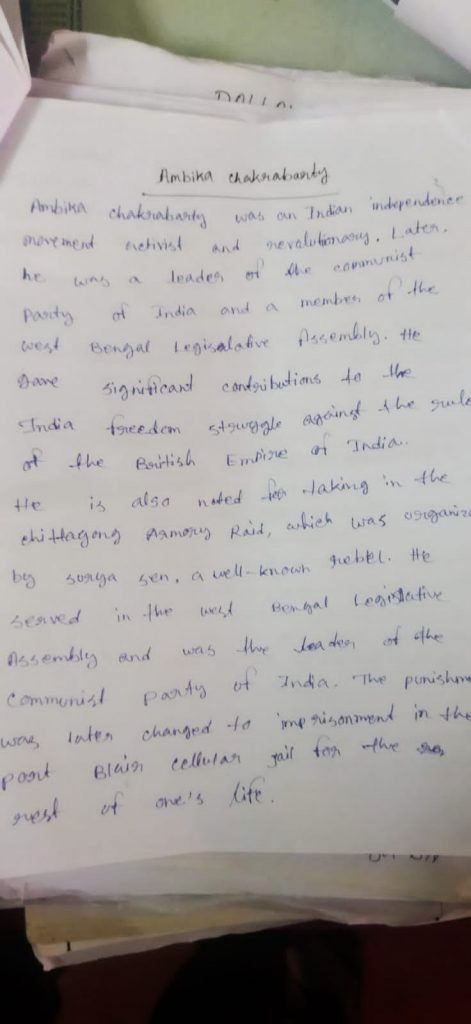 DALLA.
Ambika chakrabarty
Ambika chakrabarty was an Indian independence
movement activist and revolutionary. Later,
he was a leader of the communist
Party of India and a member of the
West Bengal Legisalative Assembly. He
Gave significant contributions to the
India freedom struggle against the rule
of the British Empire of India.
He is also noted for taking in the
chittagong Armory Raid, which was organize
by surya sen, a well-known rebel. He
served in the west Bengal Legislative
Assembly and was the leader of the
Communist party of India. The punishme
was later changed to imprisonment in the
port Blair cellular jail for the
rest of one's life.